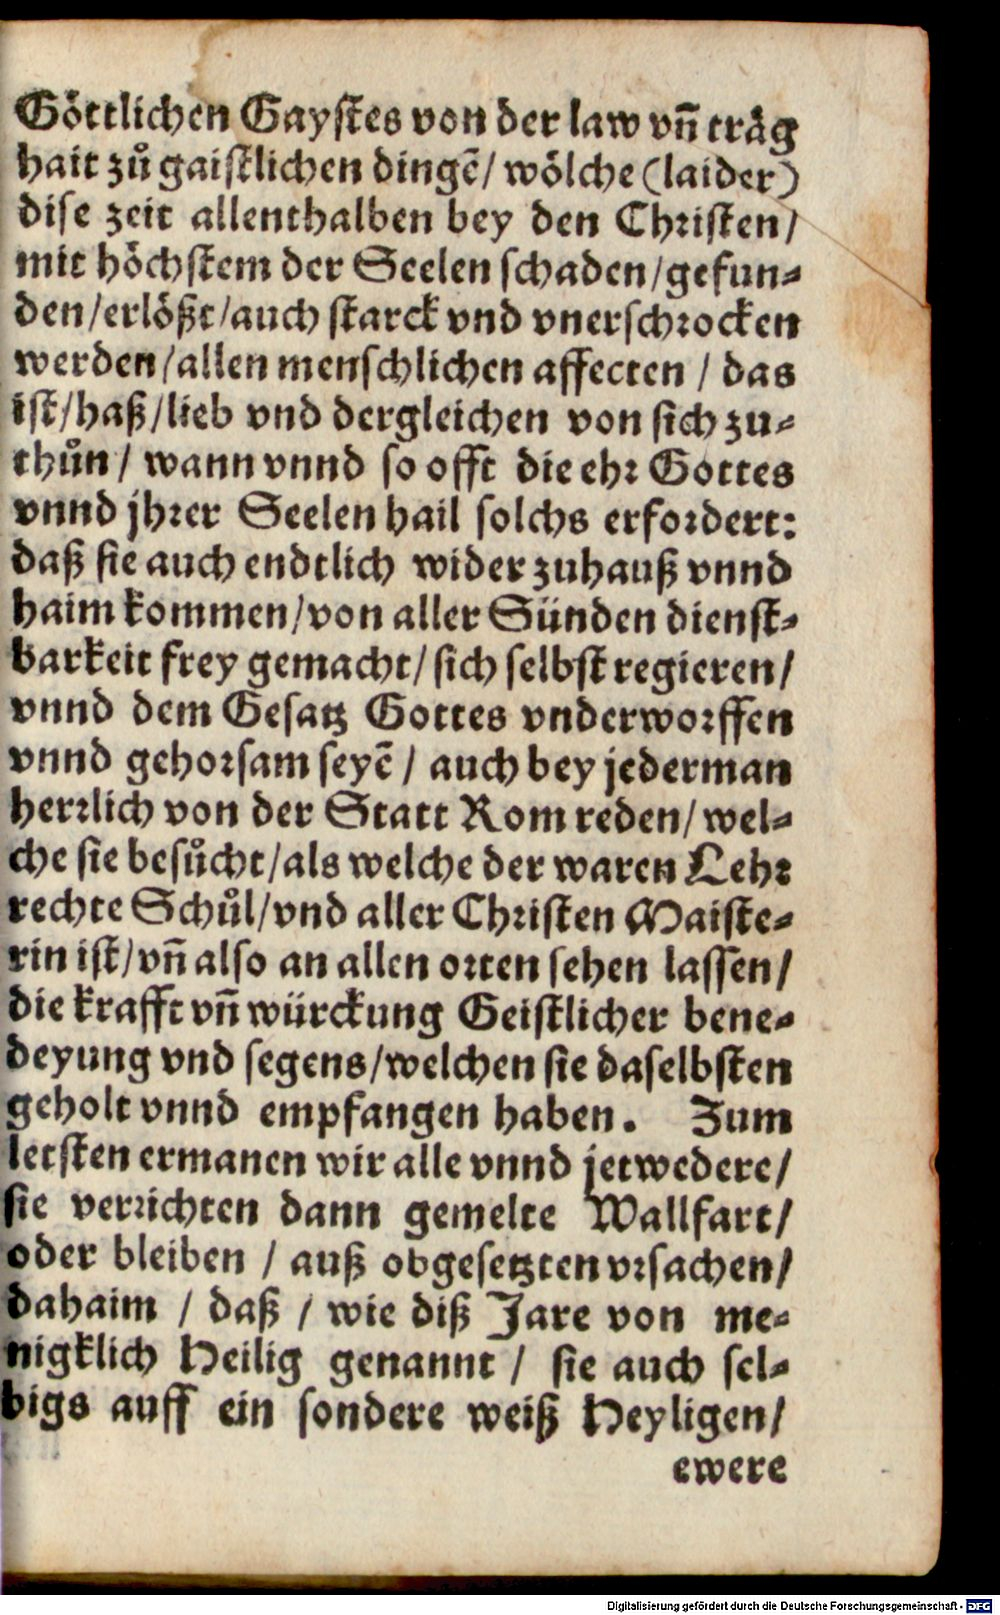 Göttlichen Gaystes von der law vñ träg
hait zů gaistlichen dingẽ/ wölche (laider)
dise zeit allenthalben bey den Christen/
mit höchstem der Seelen schaden/gefun-
den/erlößt/auch starck vnd vnerschrocken
werden/allen menschlichen affecten / das
ist/haß/lieb vnd dergleichen von sich zu-
thůn / wann vnnd so offt die ehr Gottes
vnnd jhrer Seelen hail solchs erfordert:
daß sie auch endtlich wider zuhauß vnnd
haim kommen/von aller Sünden dienst-
barkeit frey gemacht/ sich selbst regieren/
vnnd dem Gesatz Gottes vnderworffen
vnnd gehorsam seyẽ / auch bey jederman
herrlich von der Statt Rom reden/ wel-
che sie besůcht/als welche der waren Lehr
rechte Schůl/vnd aller Christen Maiste-
rin ist/vñ also an allen orten sehen lassen/
die krafft vñ würckung Geistlicher bene-
deyung vnd segens/welchen sie daselbsten
geholt vnnd empfangen haben. Zum
letsten ermanen wir alle vnnd jetwedere/
sie verrichten dann gemelte Wallfart/
oder bleiben / auß obgesetzten vrsachen/
dahaim / daß / wie diß Jare von me-
nigklich Heilig genannt / sie auch sel-
bigs auff ein sondere weiß Heyligen/
ewere
Digitalisierung gefördert durch die Deutsche Forschungsgemeinschaft - DFG